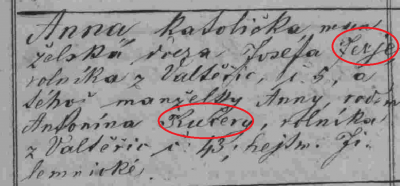 Anna, katolička, man
želská dcera Josefa Jerje
rolníka z Valtěřic, č. 5, a
téhož manželky Anny, rodem
Antonína Kučery, rolníka
z Valtěřic č. 43, hejtm. Ji-
lemnické.